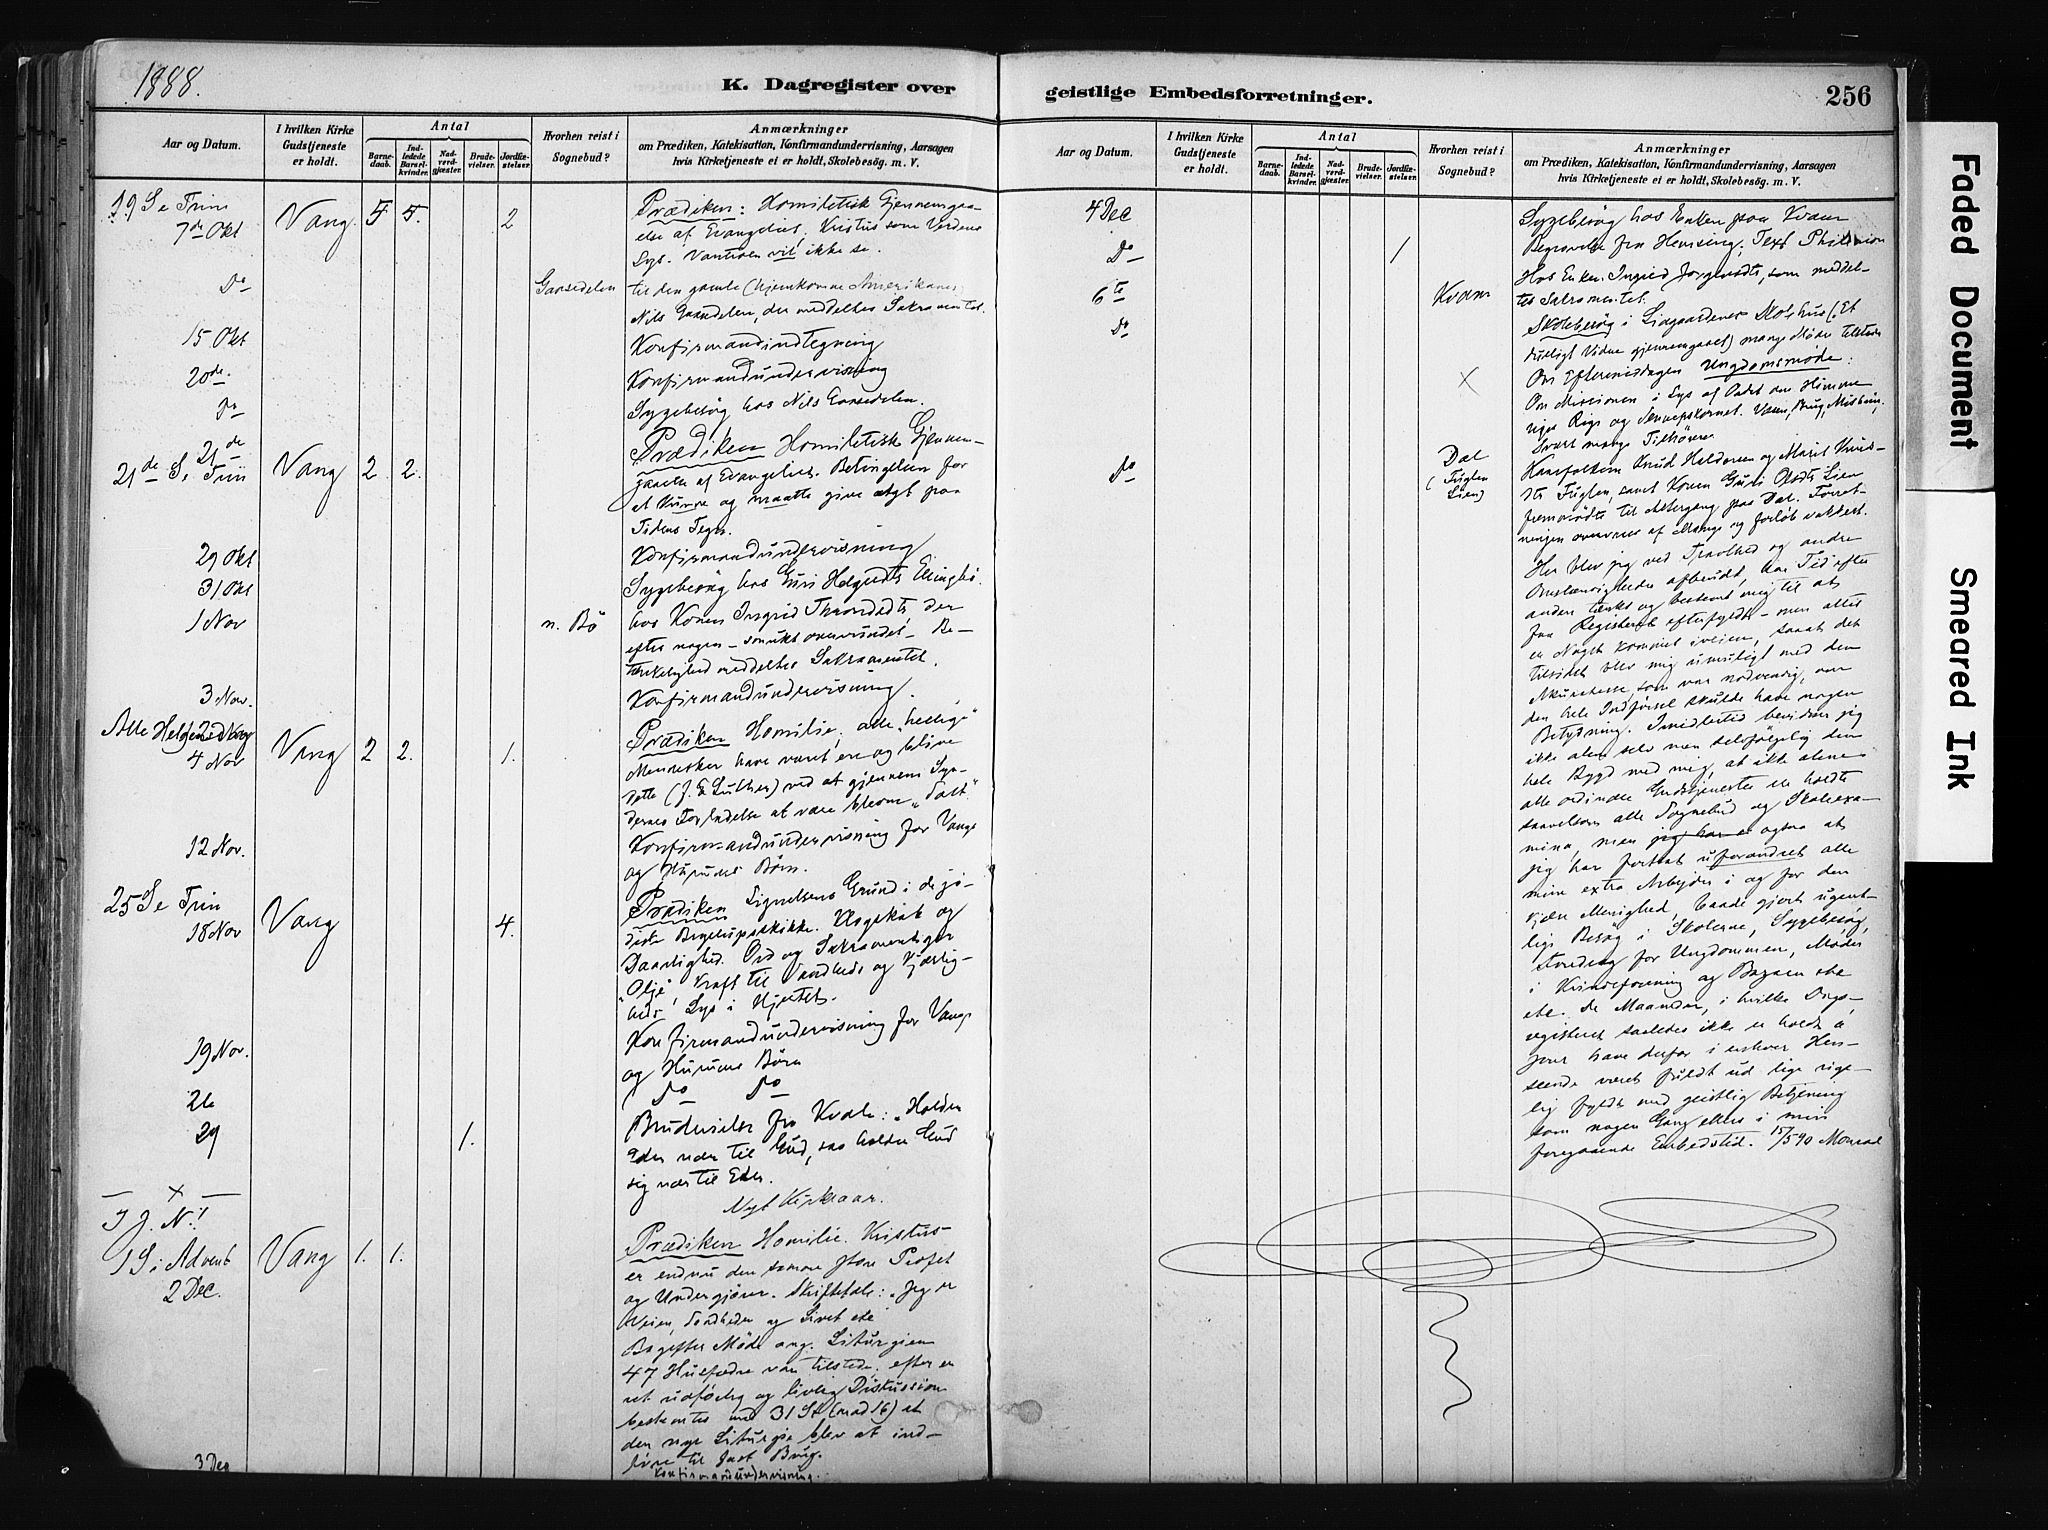 1888.
K. Dagregister over
Aar og Datum.
I hvilken Kirke Gudstjeneste er holdt.
Antal
Barnedaab.
Indledede Barselkvinder.
Nadverdgjæster.
Brudevielser.
Jordfæstelser.
Hvorhen reist i Sognebud?
Anmærkninger
om Prædiken, Katekisation, Konfirmandundervisning, Aarsagen
hvis Kirketjeneste ei er holdt, Skolebesög. m. V.
19 S e Trin
7de Okt Vang 5 5. 2 Prædiken: Homiletisk Gjennemgaa-
else af Evangeliet. Kristus som Verdens
Lys. Vantroen vil ikke se.
Do til den gamle (hjemkomne Amerikaner)
Nils der meddeltes Sakramentet.
15 Okt Konfirmandindtegning
20de Konfirmandundervisning
Do Sygebesög hos Nils
21de
21de S. Trin Vang 2 2. Prædiken Homiletisk Gjennem-
gaaelse af Evangeliet. Betingelsen for
at kunne og maatte give agt paa
Tidens Tegn.
29 Okt Konfirmandundervisning
31 Okt Sygebesög hos Guri
1 Nov n. Bö hos Konen Ingrid der
efter nogen smukt overvundet Be-
tænkelighed meddeltes Sakramentet.
3 Nov. Konfirmandundervisning.
Alle Helgens
4 Nov Vang 2 2. 1. Prædiken Homilie, alle "hellige"
Mennesker have været ere og blive
dette (J. E. Luther) ved at gjennem Syn-
dernes Forladelse at være bleven "Salt".
12 Nov. Konfirmandundervisning for Vangs
og Hurums Börn.
25 S e Trin
18 Nov Vang 4. Prædiken Lignelsens Grund i de jö-
diske Bryllupsskikke. Klogskab og
Daarlighed. Ord og Sakramenter gjør
"Olje", Kraft til Sandheds og Kjærlig-
heds Lys i Hjertet.
19 Nov. Konfirmandundervisning for Vangs
og Hurums Börn
26 Do Do
29 1. Brudevielse fra Kvale: "Holder
eder nær til Gud, saa holder Gud
sig nær til Eder.
— x —
Nyt Kirkeaar.
I J. N.!
1 S i Advent Vang 1. 1. Prædiken Homilie. Kristus
2 Dec. er endnu den samme store Profet
og Undergjører. Skriftetale: "Jeg er
Veien, Sandheden og Livet etc
Bagefter Møde ang. Liturgien
47 Husfædre var tilstede. efter en
ret udførlig og livlig Diskussion
bestemtes med 31 St (mod 16) at
den nye Liturgie blev at ind-
føre til fast Brug.
3 Dec Konfirmandundervisning.
geistlige Embedsforretninger.
256
Aar og Datum.
I hvilken Kirke Gudstjeneste er holdt.
Antal
Barnedaab.
Indledede Barselkvinder.
Nadverdgjæster.
Brudevielser.
Jordfæstelser.
Hvorhen reist i Sognebud?
Anmærkninger
om Prædiken, Katekisation, Konfirmandundervisning, Aarsagen
hvis Kirketjeneste ei er holdt, Skolebesög. m. V.
4 Dec Sygebesög hos Enken paa Kvam
Do 1 Begravelse fra Hensing. Text
6te Kvam Hos Enken Ingrid som meddel-
tes Sakramentet.
Do Skolebesög i Skolehus (Et
mange Mödre tilstede
x Om Eftermiddagen Ungdomsmøde:
Om Missionen i Lys af Ordet om Himme-
riges Rige og Sennepskornet.
Svært mange Tilhörere
Do Dal
(Fuglen
Lien) Husfolkene Knud Haldorsen og Marit Knuds-
dtr Fuglen, samt Konen Guri Lien
fremmødte til Altergang paa Dal. Forret-
ningen overvares af Mange og forløb vakkert.
Her blev jeg ved Travlhed og andre
Omstændigheder afbrudt, har Tid efter
anden tænkt og bestemt mig til at
faa Registeret efterfyldt – men altid
er Noget kommet iveien, saaat det
tilsidst blev mig umuligt med den
Akuratesse, som var nødvendig, om
den hele Indførsel skulde have nogen
Betydning. Imidlertid bevidner jeg
ikke alene selv men selvfølgelig den
hele Bygd med mig, at ikke alene
alle ordinære Gudstjenester ere holdte
saavelsom alle Sognebud og Skoleexa-
mina, men jeg har o ogsaa at
jeg har fortsat uforandret alle
mine extra Arbejder i og for den
kjære Menighed, baade gjort ugent-
lige Besög i Skolerne, Sygebesög,
Foredrag for Ungdommen, Møder
i Kvindeforening og Bazaren etc
etc. De Maaneder, i hvilke Dags-
registeret saaledes ikke er holdt à
jour have derfor i enhver Hen-
seende været fuldt ud lige rige-
lig fyldt med geistlig Betjening
som nogen Gang ellers i min
foregaaende Embedstid. 15/5 90 Monrad
Faded Document
Smeared Ink